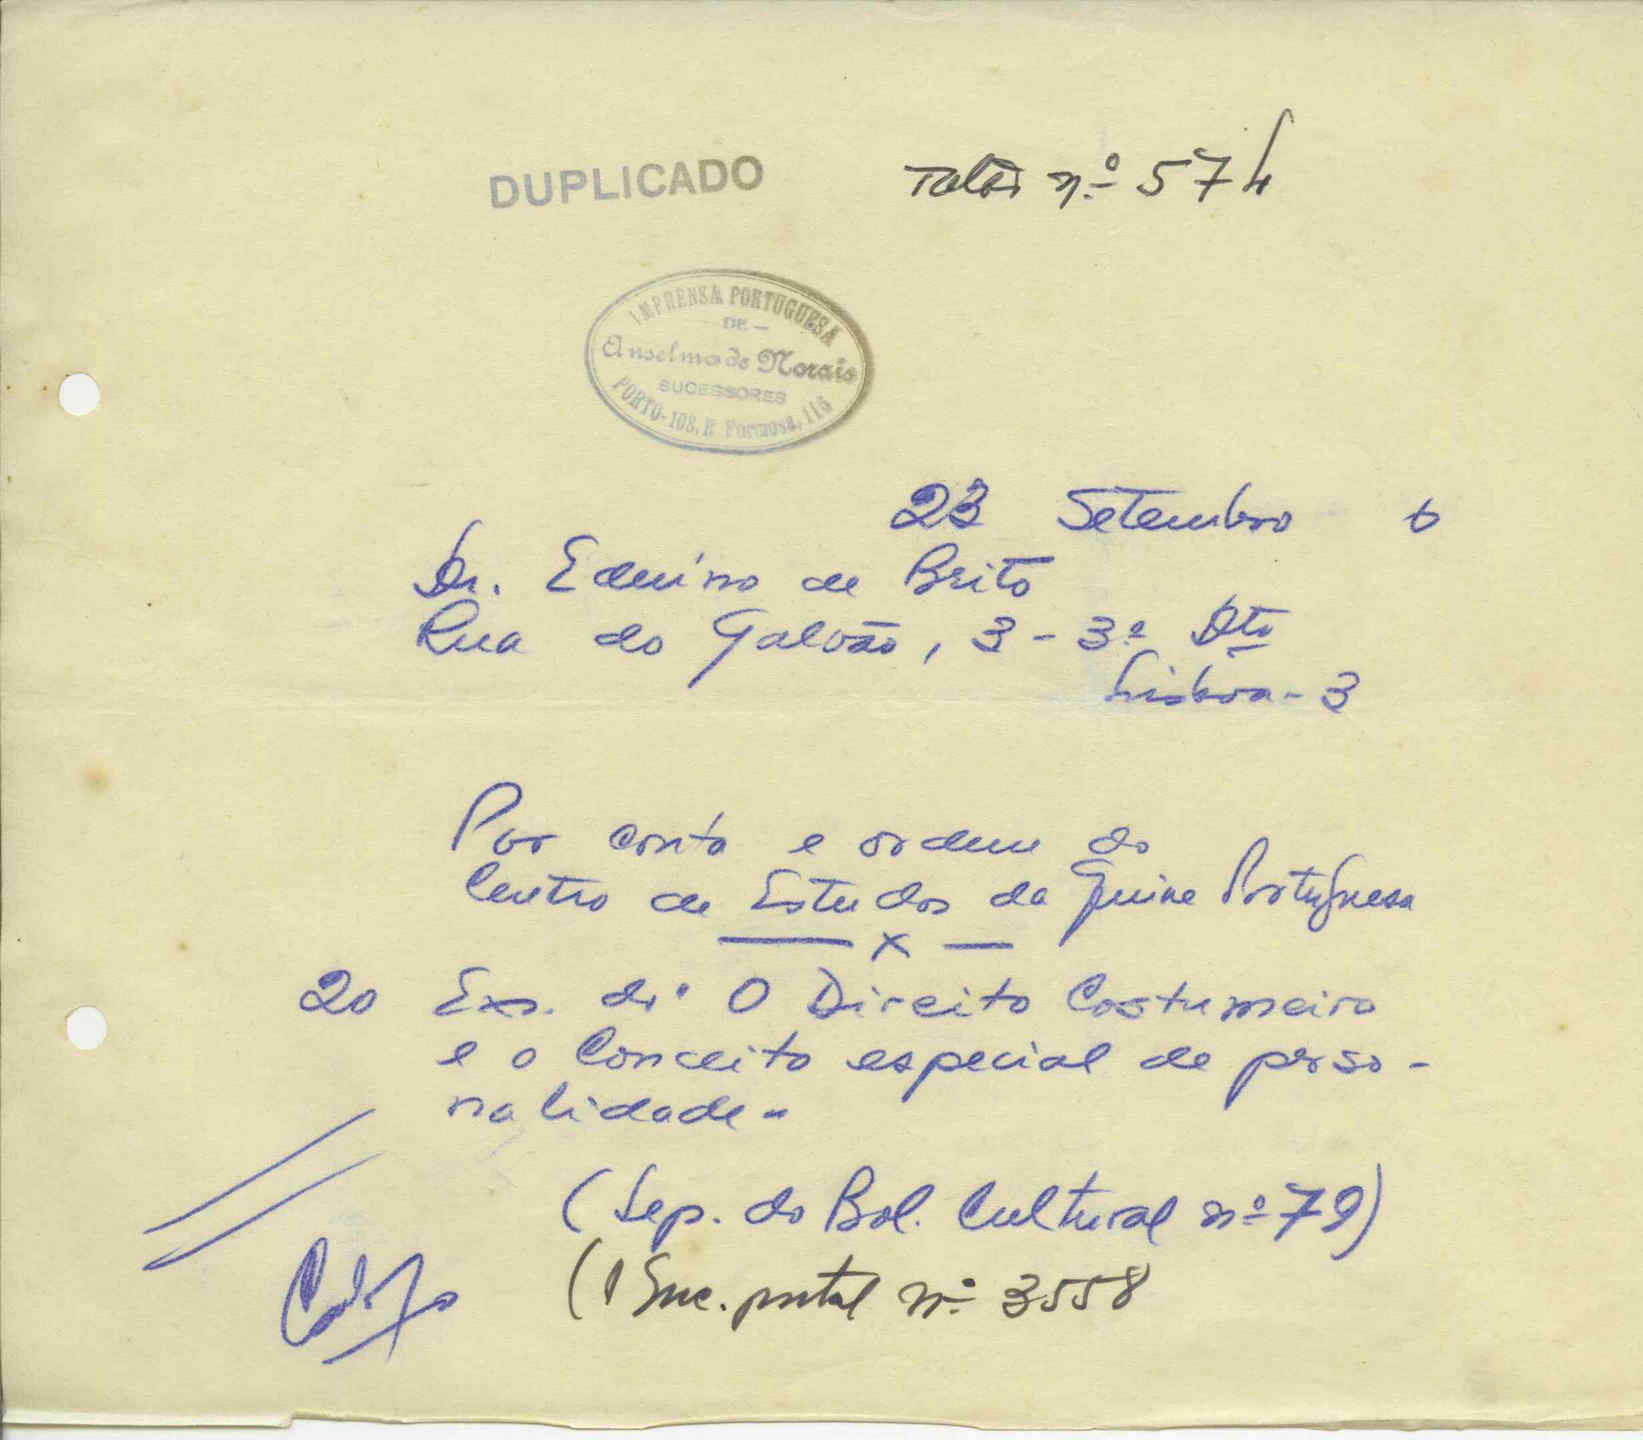 DUPLICADO
Talão nº 574
IMPRENSA PORTUGUESA
DE
Anselmo de Morais
SUCESSORES
PORTO-108, R. Formosa, 116
23 Setembro 6
Dr. Eduino de Brito
Rua do Galvão, 3 - 3º Dto
Lisboa - 3
Por conta e ordem do
Centro de Estudos da Guine Portuguesa
x
20 Exs. do: O Direito Costumeiro
e o Conceito especial de perso-
nalidade -
(Sep. do Bol. Cultural nº 79)
(1 Enc. postal nº 3558